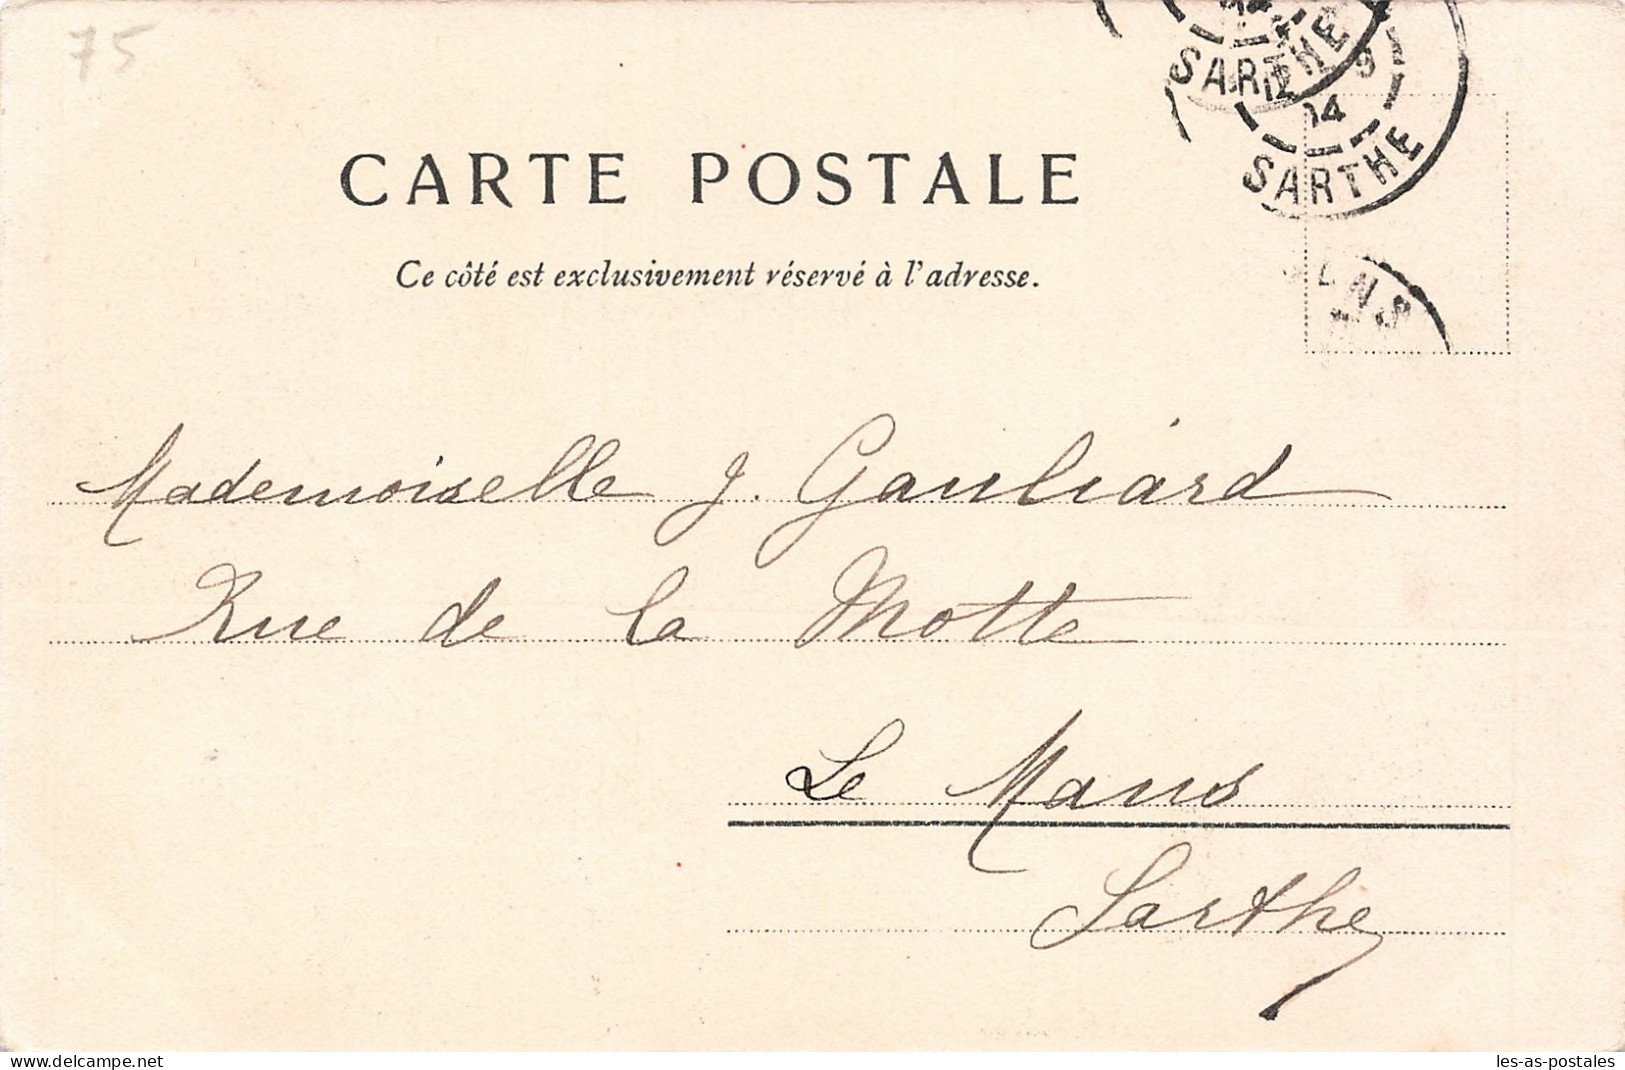 75
SARTHE
9
04
SARTHE
CARTE POSTALE
Ce côté est exclusivement réservé à l'adresse.
Mademoiselle J. Gauliard
Rue de la Motte
Le Mans
Sarthe
les-as-postales